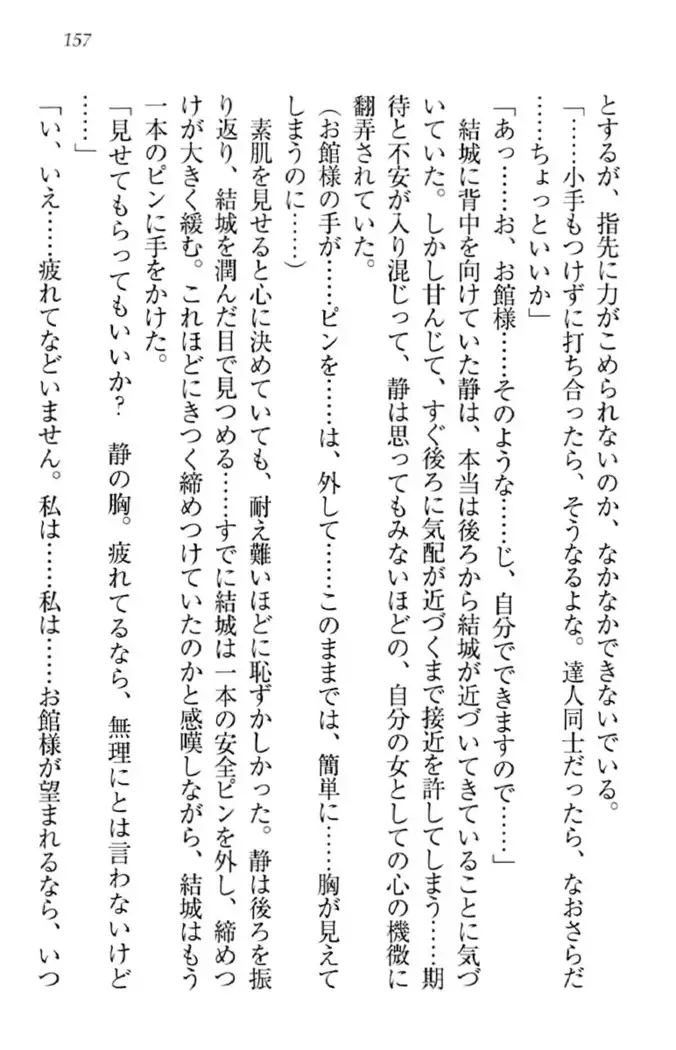 157
とするが、指先に力がこめられないのか、なかなかできないでいる。
「……小手もつけずに打ち合ったら、そうなるよな。達人同士だったら、なおさらだ
……ちょっといいか」
「あっ……お、お館様……そのような……じ、自分でできますので……」
結城に背中を向けていた静は、本当は後ろから結城が近づいてきていることに気づ
いていた。しかし甘んじて、すぐ後ろに気配が近づくまで接近を許してしまう……期
待と不安が入り混じって、静は思ってもみないほどの、自分の女としての心の機微に
翻弄されていた。
（お館様の手が……ピンを……は、外して……このままでは、簡単に……胸が見えて
しまうのに……）
素肌を見せると心に決めていても、耐え難いほどに恥ずかしかった。静は後ろを振
り返り、結城を潤んだ目で見つめる……すでに結城は一本の安全ピンを外し、締めつ
けが大きく緩む。これほどにきつく締めつけていたのかと感嘆しながら、結城はもう
一本のピンに手をかけた。
「見せてもらってもいいか？　静の胸。疲れてるなら、無理にとは言わないけど
……」
「い、いえ……疲れてなどいません。私は……私は……お館様が望まれるなら、いつ